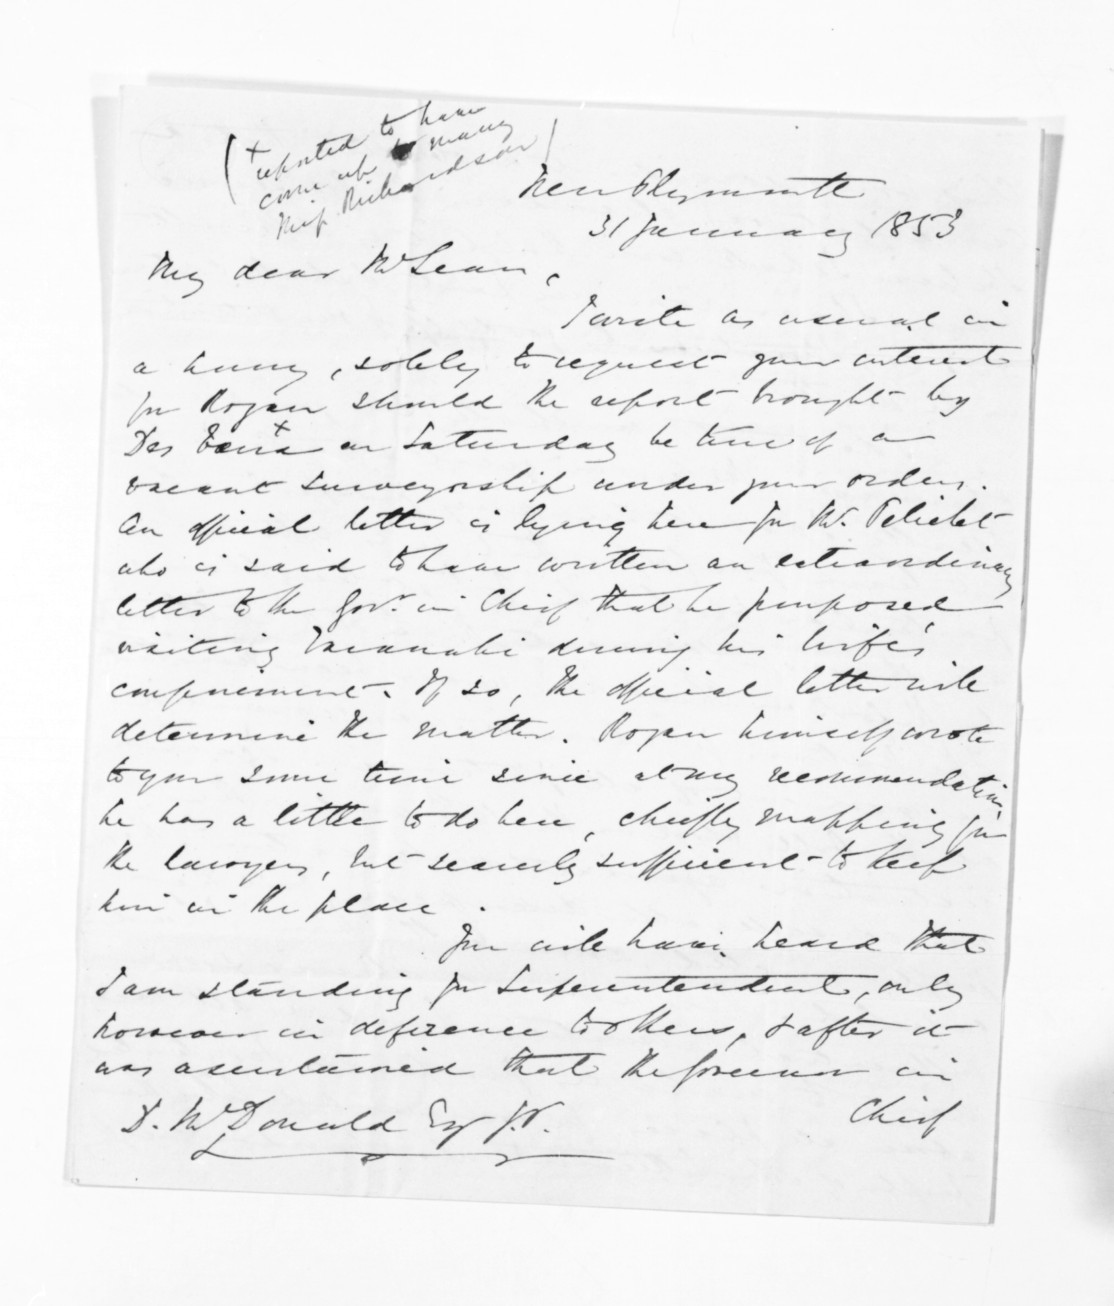 (+ reported to have
come up to marry
Miss Richardson)
New Plymouth
31 January 1853
My dear McLean,
I write as usual in
a hurry, solely to request your interest
for Rogan should the report brought by
Des Voeux + on Saturday be true of a
vacant surveyorship under your orders.
An official letter is lying here for Mr. Pelichet
who is said to have written an extraordinary
letter to the Govr. in Chief that he purposed
visiting Taranaki during his wife's
confinement. If so, the official letter will
determine the matter. Rogan himself wrote
to you some time since at my recommendation,
he has a little to do here, chiefly mapping for
the lawyers, but scarcely sufficient to keep
him in the place.
You will have heard that
I am standing for Superintendent, only
however in deference to others, & after it
was ascertained that the Governor in
Chief
D. McDonald Esq J.P.